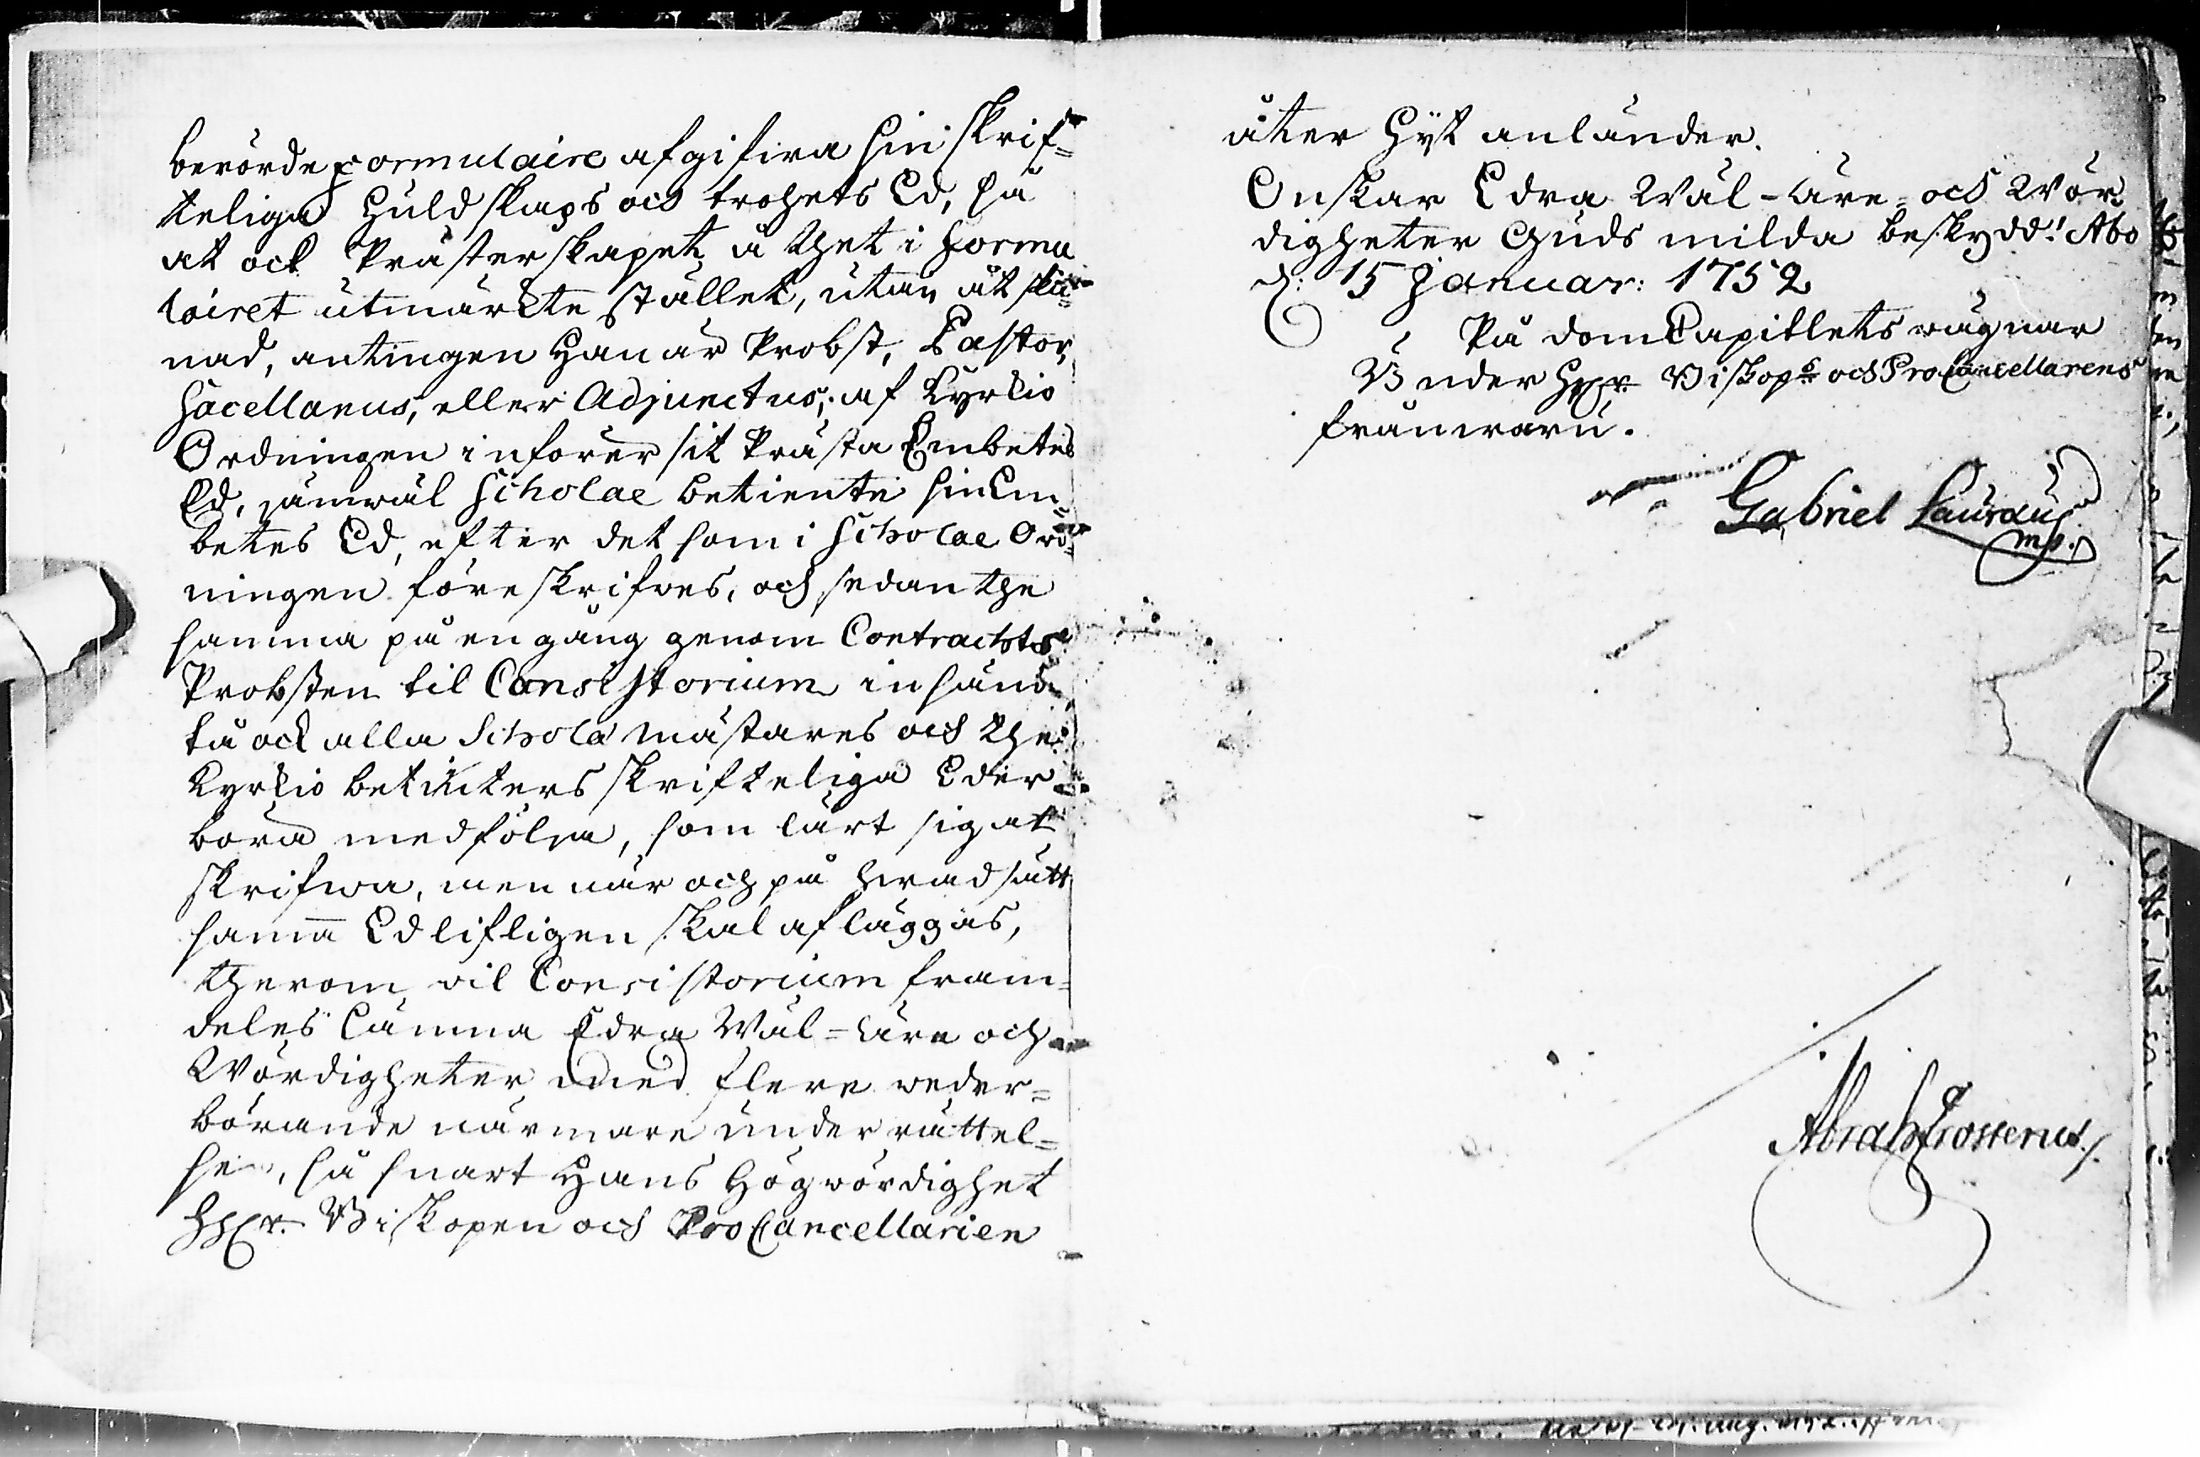 berörde Formulaire afgifwa sin skrif=
teliga Huldskaps och trohets Ed, så
at ock Prästerskapet å thet i Formu
lairet utmärkte stället, utan åt skil=
nad, antingen Han är Probst, Pastor,
Sacellanus, eller Adjunctus, af Kyrkio
Ordningen införer sit Prästa Embetes
Ed, jämwäl Scholae betiente sin Em=
betes Ed, efter det som i Scholae Ord=
ningen föreskrifves, och sedan the
samma på en gång genom Contracts
Probsten til Consistorium insänd
tå ock alla Schola mästares och the
Kyrkio betienters skrifteliga Eder
böra medfölja, som lärt sig at
skrifwa, men när och på hwad sätt
sama Ed lifligen skal afläggas,
therom vil Consistorium fram=
deles lämna Edra Wäl=äre och
Wördigheter med flere weder=
börande närmare underrättel=
se, så snart Hans Högwördighet
Hr Biskopen och ProCancellarien
åter hijt anländer.
Önskar Edra Wäl-äre=och Wör
digheter Guds milda beskydd! Åbo
d: 15 Januar: 1752
På DomCapitlets wägnar
Under Hr Biskops och ProCancellarens
frånwaru.
Gabriel Lauræus
mp.
Abrah Frosterus.